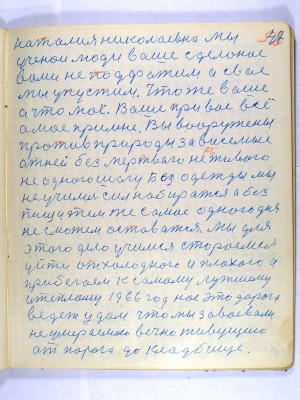 наталия николаевна мы
ученои люди ваше сделоное
вами не поддражим а свое
мы упустим. Что же ваше
а что моё. Ваше при вас всё
а мое при мне. Вы вооружены
против природы зависемые
от ней без мертваго не живого
не одного числу Без одежды мы
не учимся сил набиратся а без
пищи тем же самое одного дня
не сможем оставатся. Мы для
этого дело учимся стораемся
уйти от холодного и плохого а
прибегаем к самому лутшому
и теплому 1966 год нас это дорога
ведет у дом что мы завоевали
не умераемою вечно живущею
от порога до кладбище.